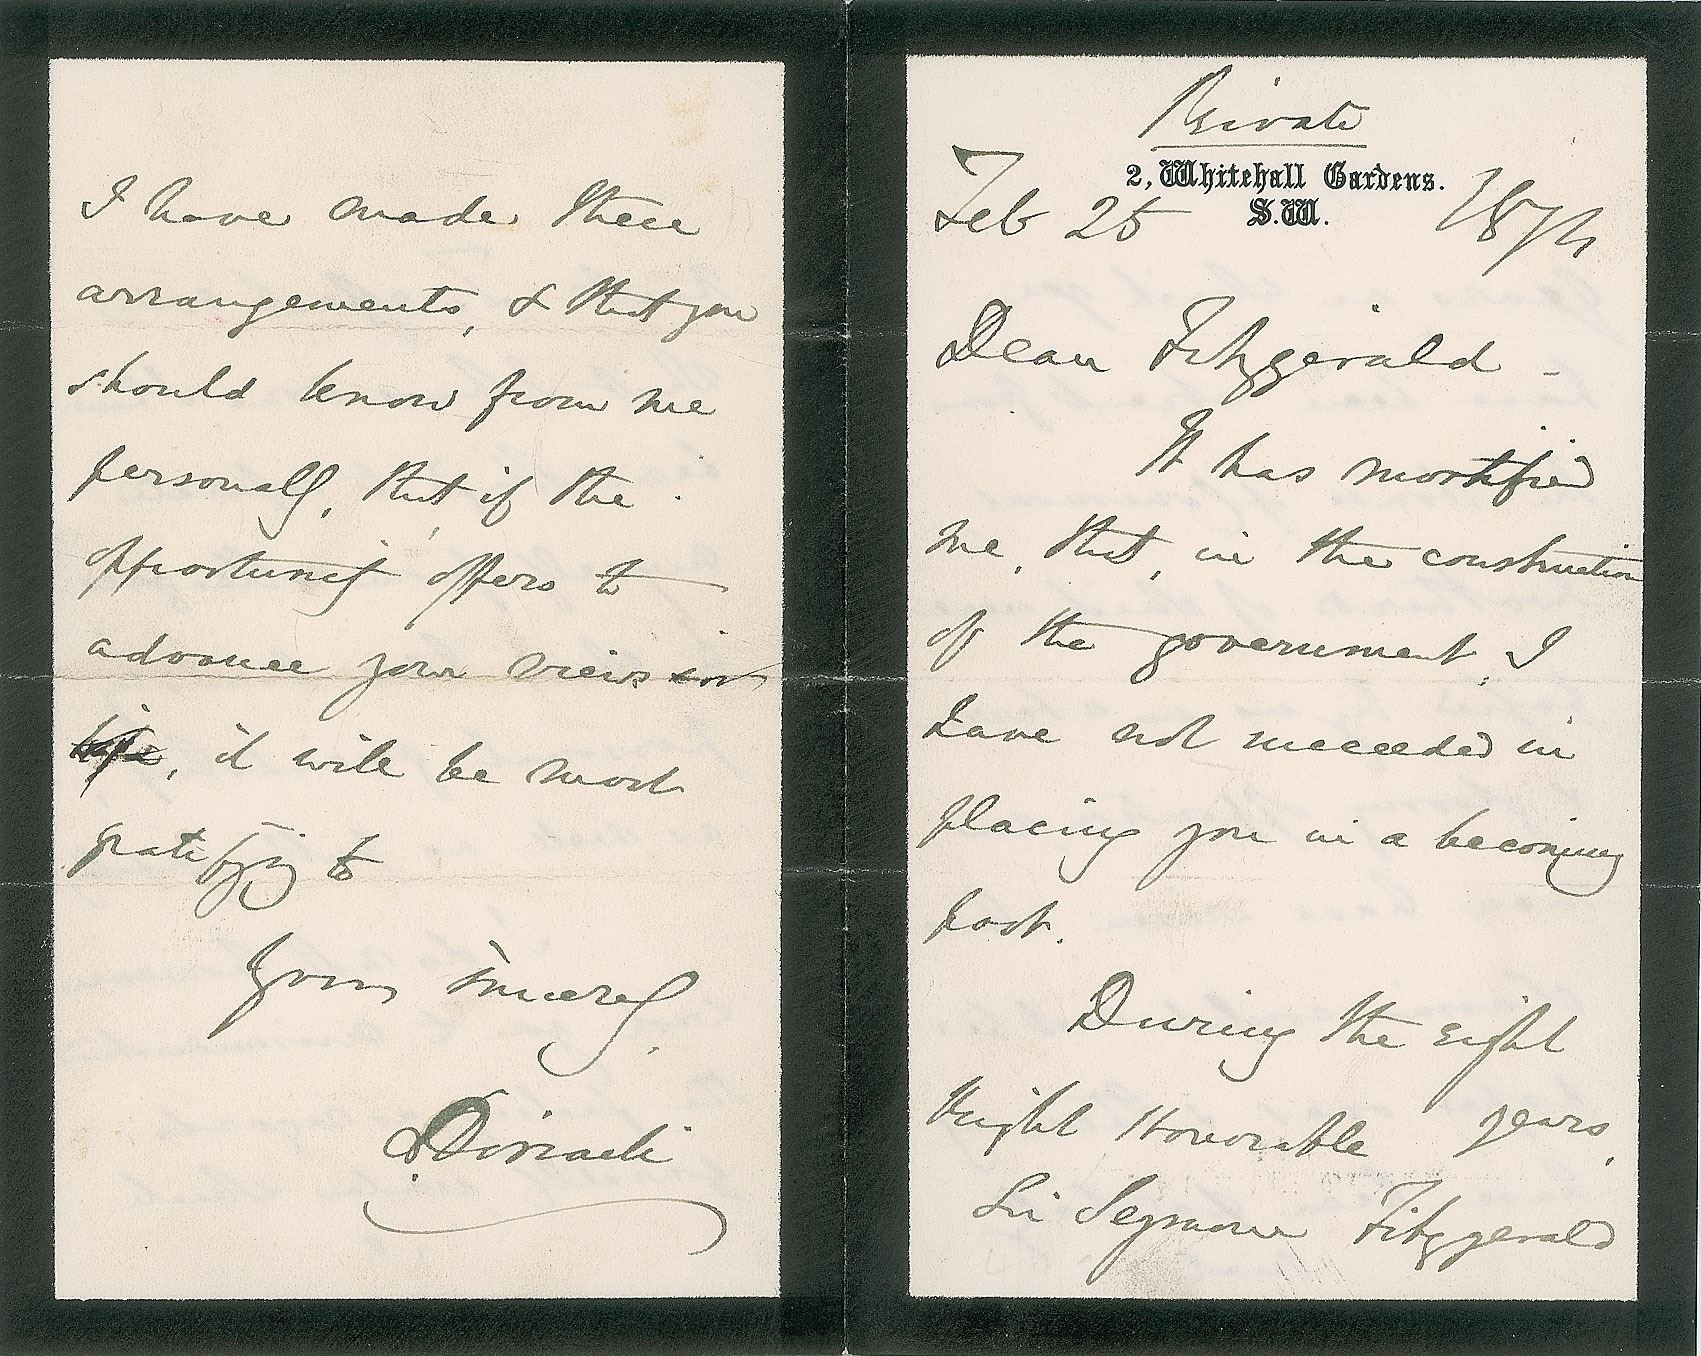 Private
2, Whitehall Gardens.
S.W.
Feb 25 1874
Dear Fitzgerald -
It has mortified
me, that, in the construction
of the government, I
have not succeeded in
placing you in a becoming
post.
During the eight
Right Honorable years,
Sir Seymour Fitzgerald
I have made these
arrangements, & that you
should know from me
personally, that if the
opportunity offers to
advance your views
, it will be most
gratifying to
Yours sincerely,
B. Disraeli